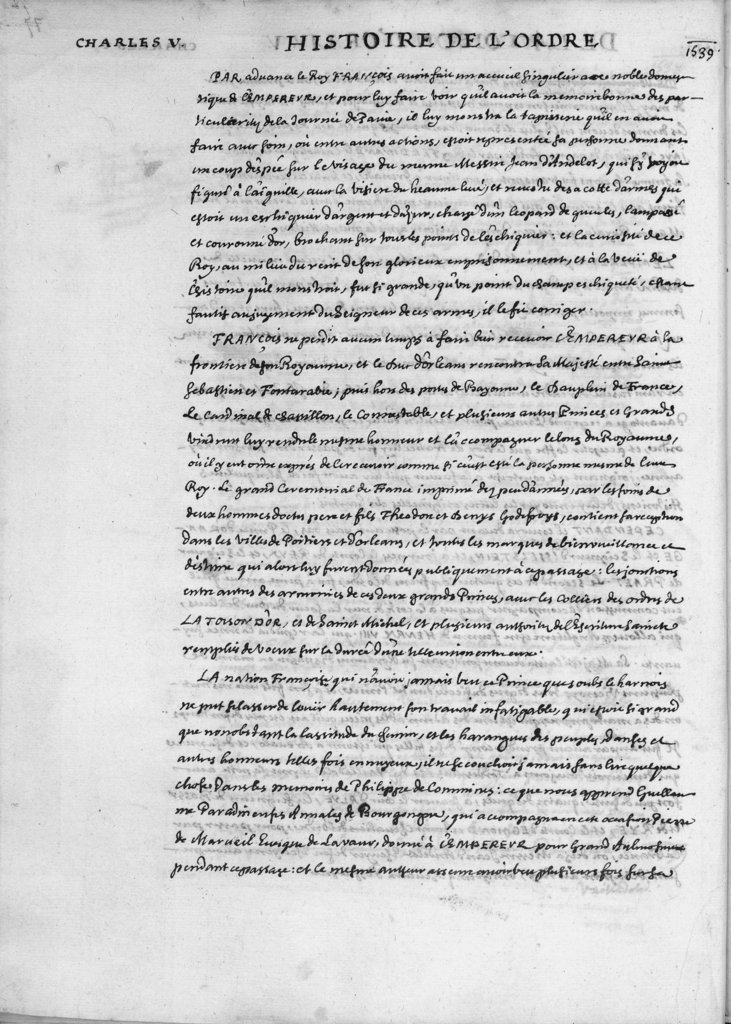 CHARLES V. HISTOIRE DE L'ORDRE 1539
PAR aduance le Roy FRANÇOIS auoit fait un accueil singulier a ce noble domes-
tique de L'EMPEREUR, et pour luy faire voir qu'il auoit la memoire bonne des par-
ticularitez de la Journée de Pauie, il luy monstra la tapisserie qu'il en auoit
faire auec soin, où entre autres actions, estoit representée sa personne donnant
un coup d'espée sur le visage du mesme Messire Jean d'Andelot, qui s'y voyoit
figuré à l'aiguille, auec la visiere du heaume leué, et reuestu de sa cotte d'armes qui
estoit un eschiquier d'argent et d'azur, chargé d'un leopard de gueules, lampassé
et couronné d'or, brochant sur tous les points de l'eschiquier: et la curiosité de ce
Roy, au milieu du recit de son glorieux emprisonnement, et à la veuë de
l'histoire qu'il monstroit, fut si grande, qu'un point du champ eschiqueté, estant
fautif au jugement du Seigneur de ces armes, il le fit corriger.
FRANÇOIS ne perdit aucun temps à faire bien receuoir L'EMPEREUR à la
frontiere de son Royaume, et le Duc d'Orleans rencontra Sa Majesté entre Saint
Sebastien et Fontarabie; puis hors des portes de Bayonne, le Dauphin de France,
Le Cardinal de Chastillon, le Connestable, et plusieurs autres Princes et Grands
vindrent luy rendre le mesme honneur et l'accompagner le long du Royaume,
où il y eut ordre exprés de le receuoir comme si c'eust esté la personne mesme de leur
Roy. Le grand Ceremonial de France imprimé dez peu d'années, par les soins de
deux hommes doctes pere et fils Theodore et Denys Godefroys, contient sa reception
dans les villes de Poitiers et d'orleans, et toutes les marques de bienueuillance et
d'estime qui alors luy furent données publiquement à ce passage: les jonctions
entre autres des armoiries de ces deux grands Princes, auec les Colliers des ordres de
LA TOISON D'OR, et de Sainct Michel, et plusieurs authoritez de l'Escriture Saincte
remplies de voeux sur la durée d'une telle union entre eux.
LA nation Françoise qui n'auoit jamais veu ce Prince que soubs le harnois
ne put se lasser de louër hautement son travail infatigable, qui estoit si grand
que nonobstant la lassitude du chemin, et les harangues des peuples, danses et
autres honneurs telles fois ennuyeux, il ne se couchoit jamais sans lire quelque
chose dans les memoires de Philippe de Commines: ce que nous apprend Guillau-
me Paradin en ses Annales de Bourgongne, qui accompagna en cete occasion Pierre
de Marueil Euesque de Lavaur, donné à L'EMPEREUR pour Grand Aulmosnier
pendant ce passage: et le mesme autheur asseure auoir veu plusieurs fois sur sa